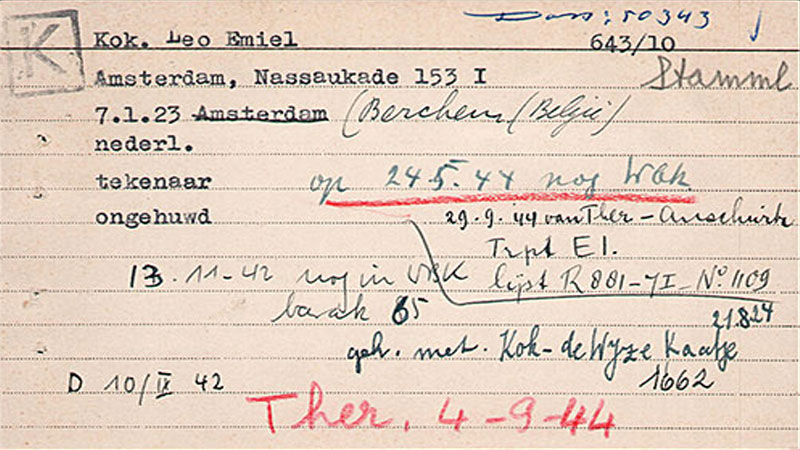 Doss: 50343
K
Kok. Leo Emiel 643/10
Amsterdam, Nassaukade 153 I Stamml
7.1.23 Amsterdam (Berchem (België)
nederl.
tekenaar op 24-5-44 nog Wbk
ongehuwd 29-9-'44 van Ther-Auschwitz
Trpt E I.
13.11-42 nog in WBK lijst R 881-7I-No 1109
barak 65 21.8.24
geh. met. Kok-de Wyze Kaatje
D 10/IX 42 1662
Ther. 4-9-44